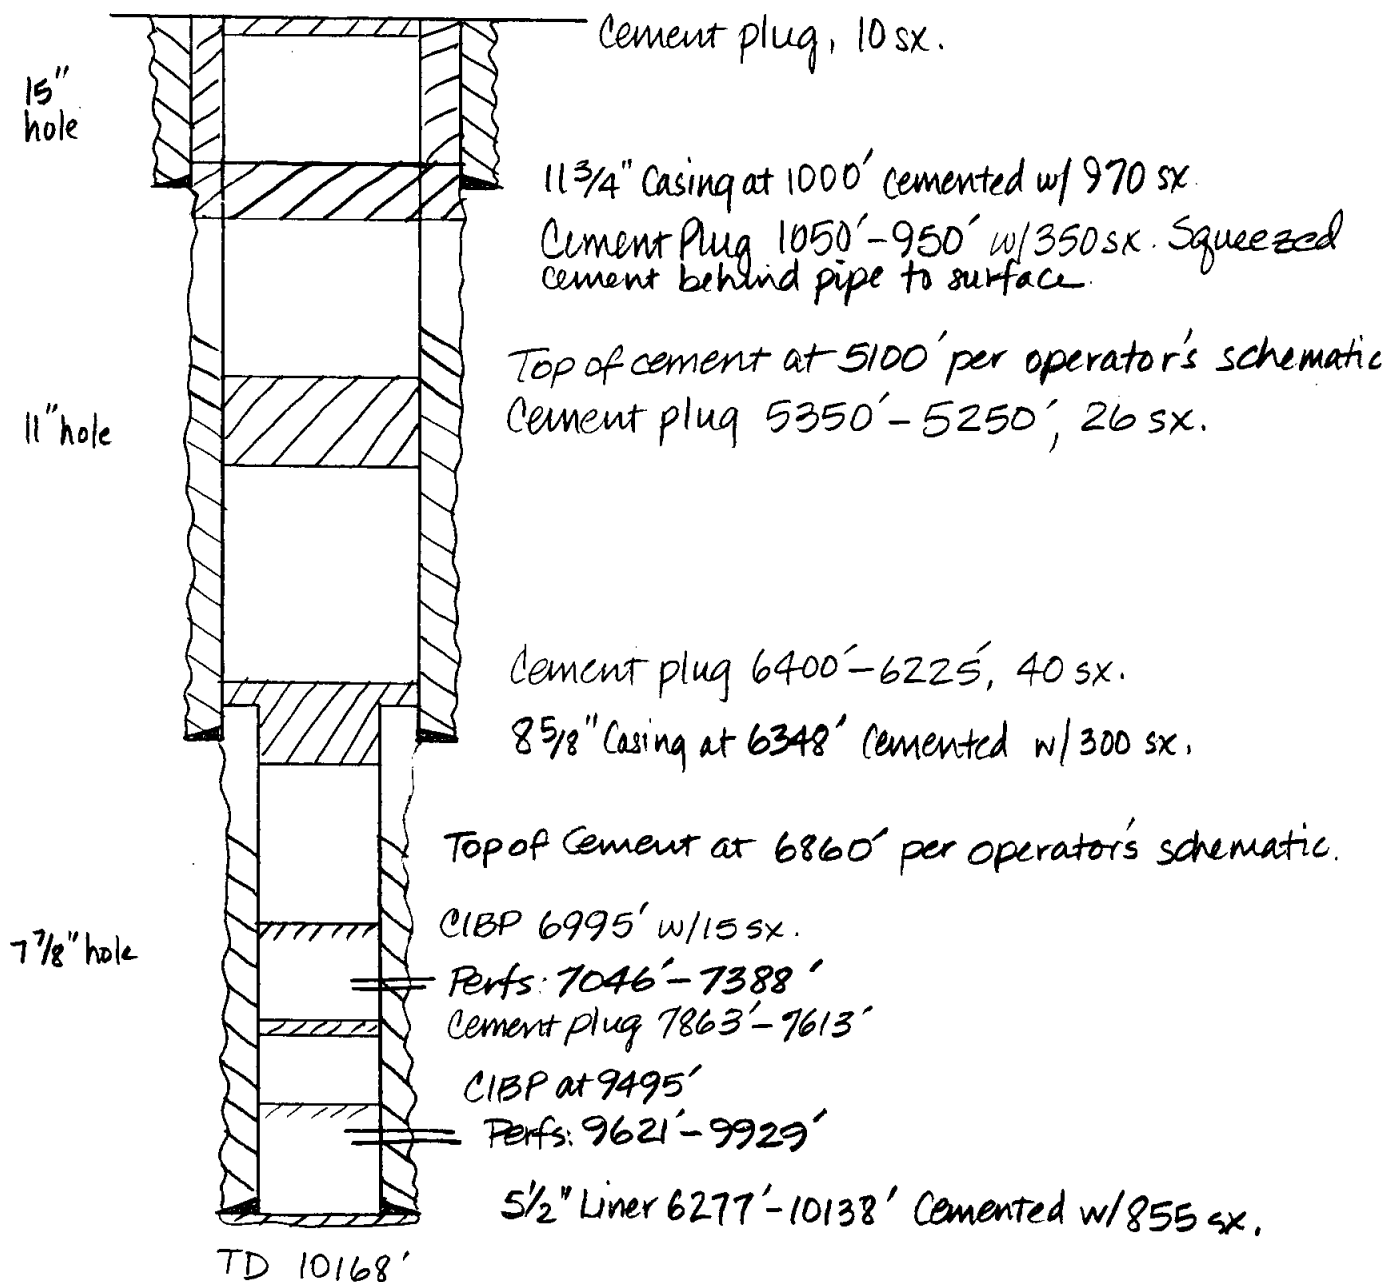 Cement plug, 10 sx.
15"
hole
11 3/4" Casing at 1000' cemented w/ 970 sx.
Cement Plug 1050'-950' w/350 sx. Squeezed
cement behind pipe to surface.
Top of cement at 5100' per operator's schematic
11" hole
Cement plug 5350'-5250', 26 sx.
Cement plug 6400'-6225', 40 sx.
8 5/8" Casing at 6348' Cemented w/ 300 sx.
Top of Cement at 6860' per operator's schematic.
7 7/8" hole
CIBP 6995' w/15 sx.
Perfs: 7046'-7388'
Cement plug 7863'-7613'
CIBP at 9495'
Perfs: 9621'-9929'
5 1/2" Liner 6277'-10138' Cemented w/855 sx.
TD 10168'